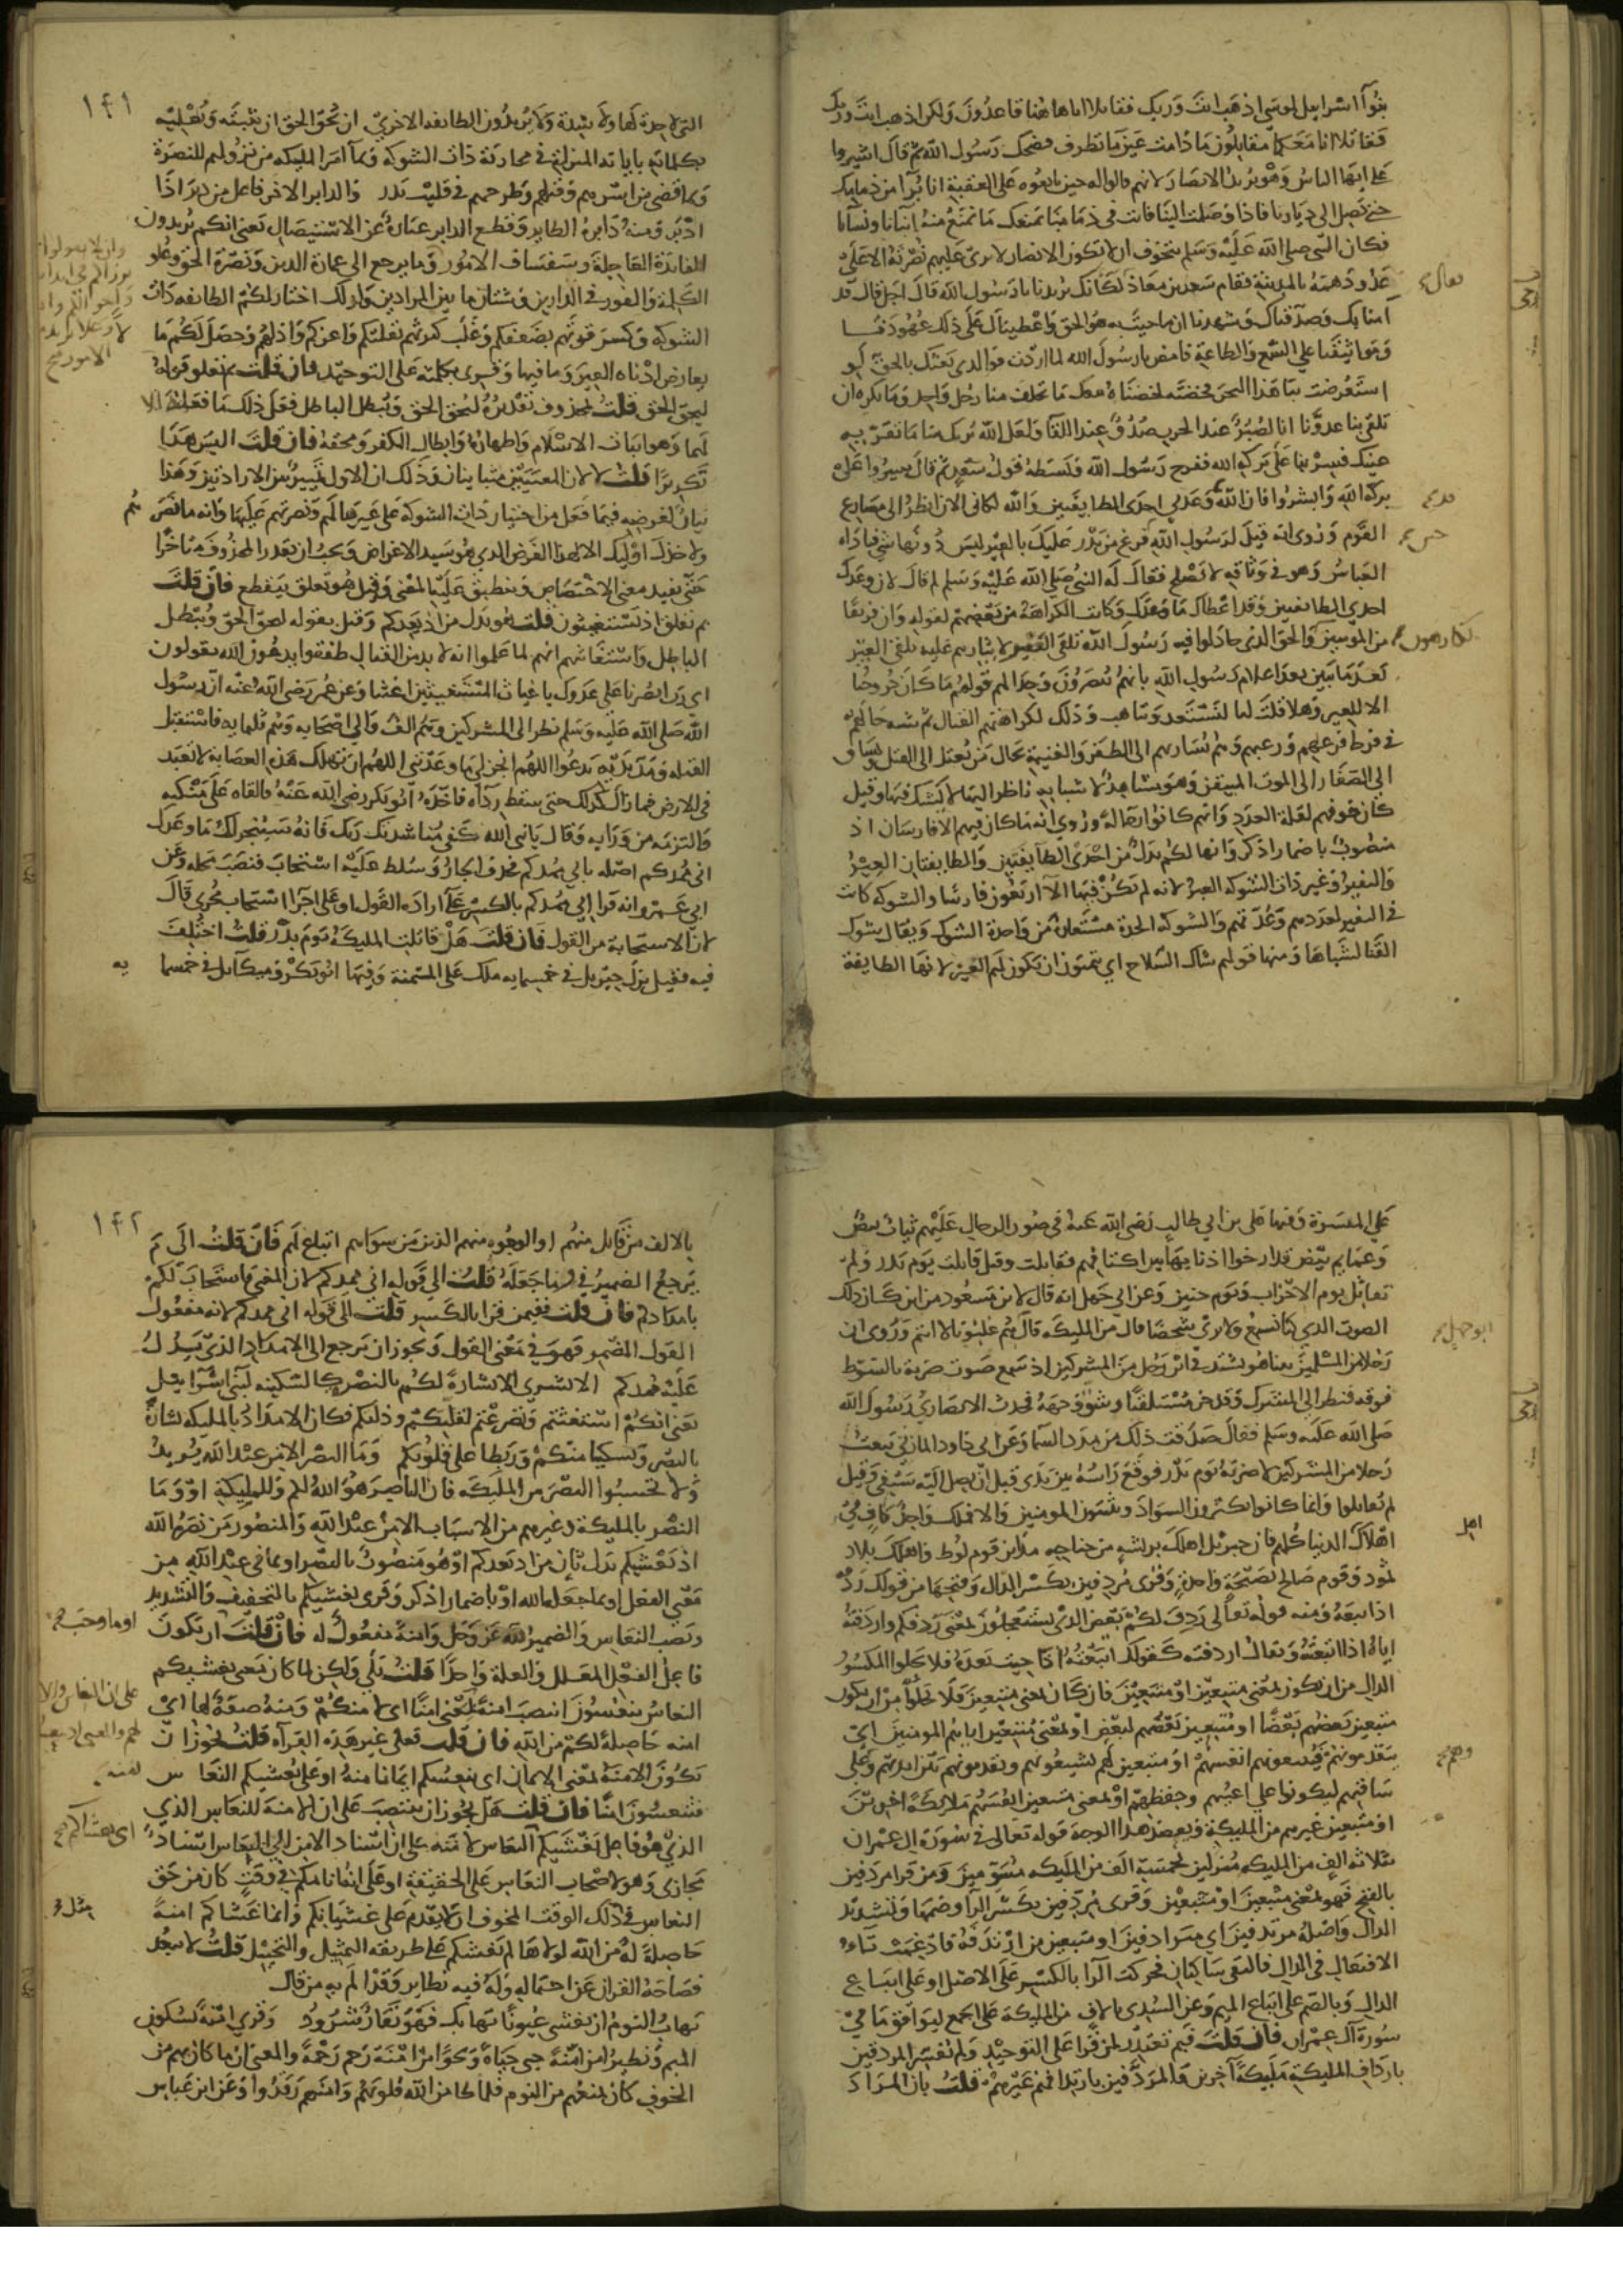 بنوا اسرائيل لموسى اذهب انت وربك فقاتلا انا هاهنا قاعدون ولكن اذهب انت وربك
فقاتلا انا معكما مقاتلون ما دامت عين منا تطرف فضحك رسول الله ثم قال اشيروا
علي ايها الناس وهو يريد الانصار لانهم قالوا له حين بايعوه على العقبة انا برآ من ذمامك
حتى تصل الى ديارنا فاذا وصلت الينا فانت في ذمامنا نمنعك مما نمنع منه ابنانا ونسانا
فكان النبي صلى الله عليه وسلم يتخوف ان لا تكون الانصار لا ترى عليهم نصرته الا على
عدو دهمه بالمدينة فقام سعد بن معاذ لكانك تريدنا يا رسول الله قال اجل قال قد
آمنا بك وصدقناك وشهدنا ان ما جيت به هو الحق واعطيناك على ذلك عهودنا
ومواثيقنا على السمع والطاعة فامض يا رسول الله لما اردت فوالذي بعثك بالحق لو
استعرضت بنا هذا البحر فخضته لخضناه معك ما تخلف منا رجل واحد وما نكره ان
تلقى بنا عدونا انا لصبر عند الحرب صدق عند اللقا ولعل الله يريك منا ما تقر به
عينك فسر بنا على بركة الله ففرح رسول الله وبسطه قول سعد ثم قال سيروا على
بركة الله وابشروا فان الله وعدني احدى الطايفتين والله لكاني الان انظر الى مصارع
القوم وروي انه قيل لرسول الله فرغ من بدر عليك بالعير ليس دونها شي فناداه
العباس وهو في وثاقه لا تصلح فقال له النبي صلى الله عليه وسلم لم قال لان وعدك
احدي الطايفتين وقد اعطاك ما وعدك وكانت الكراهة من بعضهم لقوله وان فريقا
من المومنين والحق الذي جادلوا فيه رسول الله تلقي النفير لايثارهم عليه تلقي العير
بعد ما تبين بعد اعلام رسول الله بانهم ينصرون وجدالهم قولهم ما كان خروجنا
الا للعير وهلا قلت لنا لنستعد ونتاهب وذلك لكراهتهم القتال ثم شبه حالهم
في فرط فزعهم ورعبهم وهم يسار بهم الى الظفر والغنيمة بحال من يعتل الى القتل ويساق
الى الصغار الى الموت المتيقن وهو مشاهد لاسبابه ناظر اليها لا يشك فيها وقيل
كان خوفهم لقلة العدد وانهم كانوا رجالة وروي انه ما كان فيهم الا فارسان اذ
منصوب باضمار اذكر وانها لكم بدل من احدى الطايفتين والطايفتان العير
والنفير وغير ذات الشوكة العير لانه لم يكن فيها الا اربعون فارسا والشوكة كانت
في النفير لعددهم وعدتهم والشوكة الحدة مستعارة من واحدة الشوك ويقال شوك
القنا لشباها ومنها قولهم شاك السلاح اي تتمنون ان تكون لكم العير لانها الطايفة
تعالى
قد
حين
لكارهون
١٤١
التي لا حدة لها ولا شدة ولا تريدون الطايفة الاخرى ان يحق الحق ان يثبته ويعليه
بكلماته باياته المنزلة في محاربة ذات الشوكة وبما امر الملايكة من نزولهم للنصرة
وبما قضى من اسرهم وقتلهم وطرحهم في قليب بدر والدابر الاخر فاعل من دبر اذا
ادبر ومنه دابرة الطاير وقطع الدابر عبارة عن الاستيصال يعني انكم تريدون
الفايدة العاجلة وسفساف الامور وما يرجع الى عمارة الدين ونصرة الحق وعلو
الكلمة والفوز في الدارين وشتان ما بين المرادين ولذلك اختار لكم الطايفة ذات
الشوكة وكسر قوتهم بضعفكم وغلب كثرتهم بقلتكم واعزكم واذلهم وحصل لكم ما
يعارض ادناه العير وما فيها وقرئ بكلمته على التوحيد فان قلت بم تعلق قوله
ليحق الحق قلت بمحذوف تقديره ليحق الحق ويبطل الباطل فعل ذلك ما فعله الا
لهما وهو اثبات الاسلام واظهاره وابطال الكفر ومحقه فان قلت اليس هذا
تكريرا قلت لا لان المعنيين متباينان وذلك ان الاول تمييز بين الارادتين وهذا
بيان لغرضه فيما فعل من اختيار ذات الشوكة على غيرها لهم ونصرتهم عليها وانه ما نصرهم
ولا خذل اوليك الا لهذا الغرض الذي هو سيد الاغراض ويجب ان يقدر المحذوف متاخرا
حتى يفيد معنى الاختصاص وينطبق عليه المعنى وقيل هو تعلق بيقطع فان قلت
بم تعلق اذ تستغيثون قلت هو بدل من اذ يعدكم وقيل بقوله ليحق الحق ويبطل
الباطل واستغاثتهم انهم لما علموا انه لا بد من القتال طفقوا يدعون الله يقولون
اي رب انصرنا على عدوك يا غياث المستغيثين اغثنا وعن عمر رضي الله عنه ان رسول
الله صلى الله عليه وسلم نظر الى المشركين وهم الف والى اصحابه وهم ثلثمايه فاستقبل
القبلة ومد يديه يدعوا اللهم انجز لي ما وعدتني اللهم ان تهلك هذه العصابة لا تعبد
في الارض فما زال كذلك حتى سقط رداه فاخذه ابو بكر رضي الله عنه فالقاه على منكبه
والتزمه من ورايه وقال يا نبي الله كفى مناشدتك ربك فانه سينجز لك ما وعدك
اني ممدكم اصله باني ممدكم فحذف الجار وسلط عليه استجاب فنصب محله وعن
ابي عمرو انه قرا اني ممدكم بالكسر على ارادة القول او على اجرا استجاب مجرى قال
لان الاستجابة من القول فان قلت هل قاتلت المليكة يوم بدر قلت اختلف
فيه فقيل نزل جبريل في خمسمايه ملك على الميمنة وفيها ابو بكر وميكايل في خمسما يه
على الميسرة وفيها علي بن ابي طالب رضي الله عنه في صور الرجال عليهم ثياب بيض
وعمايم بيض قد ارخوا اذنابها بين اكتافهم فقاتلت وقيل قاتلت يوم بدر ولم
تقاتل يوم الاحزاب ويوم حنين وعن ابي جهل انه قال لابن مسعود من اين كان ذلك
الصوت الذي كنا نسمع ولا نرى شخصا قال من المليكة قال هم غلبونا لا انتم وروي ان
رجلا من المسلمين بينا هو يشتد في اثر رجل من المشركين اذ سمع صوت ضربة بالسوط
فوقه فنظر الى المشرك وقد خر مستلقيا وشق وجهه فحدث الانصاري رسول الله
صلى الله عليه وسلم فقال صدقت ذلك من مدد السما وعن ابي داود المازني تبعت
رجلا من المشركين لاضربه يوم بدر فوقع راسه بين يدي قبل ان يصل اليه سيفي وقيل
لم يقاتلوا وانما كانوا يكثرون السواد ويثبتون المومنين والا فملك واحد كاف في
اهلاك الدنيا كلهم فان جبريل اهلك بريشة من جناحه مداين قوم لوط واهلك بلاد
ثمود وقوم صالح بصيحة واحدة وقرى مردفين بكسر الدال وفتحها من قولك ردفه
اذا تبعه ومنه قوله تعالى ردف لكم بعض الذي تستعجلون بمعنى ردفكم واردفته
اياه اذا اتبعته ويقال اردفته كقولك اتبعته اذا جيت بعده فلا يخلوا المكسور
الدال من ان يكون بمعنى متبعين او متبعين فان كان بمعنى متبعين فلا يخلوا من ان يكون
متبعين بعضهم بعضا او متبعين بعضهم لبعض او بمعنى متبعين اياهم المومنين اي
يتقدمونهم فيتبعونهم انفسهم او متبعين لهم يشيعونهم ويقدمونهم بين ايديهم وعلى
ساقتهم ليكونوا على اعينهم وحفظهم او بمعنى متبعين انفسهم ملايكة اخرين
او متبعين غيرهم من المليكة ويعضد هذا الوجه قوله تعالى في سورة ال عمران
بثلاثه الف من المليكه منزلين بخمسة الف من المليكه مسومين ومن قرا مردفين
بالفتح فهو بمعنى متبعين او متبعين وقرى مردفين بكسر الرا وضمها وتشديد
الدال واصله مرتدفين اي مترادفين او متبعين من ارتدفه فادغمت تاء
الافتعال في الدال فالتقى ساكنان فحركت الرا بالكسر على الاصل او على اتباع
الدال وبالضم على اتباع الميم وعن السدي بالاف من المليكة على الجمع ليوافق ما في
سورة آل عمران فان قلت فبم تعتذر لمن قرا على التوحيد ولم تفسر المردفين
بارداف المليكة مليكة آخرين والمردفين بارتدافهم غيرهم قلت بان المراد
ابو جهل
اهل
١٤٢
بالالف من قاتل منهم او الوجوه منهم الذين من سواهم اتباع لهم فان قلت الى م
يرجع الضمير في وما جعله قلت الى قوله اني ممدكم لان المعنى فاستجاب لكم
بامدادكم فان قلت ففيمن قرا بالكسر قلت الى قوله اني ممدكم لانه مفعول
القول المضمر فهو في معنى القول ويجوز ان يرجع الى الامداد الذي يدل
عليه ممدكم الا بشرى الا بشارة لكم بالنصر كالسكينه لبني اسرايل
يعني انكم استغثتم وتضرعتم لقلتكم وذلتكم فكان الامداد بالمليكه بشارة
بالنصر وتسكينا منكم وربطا على قلوبكم وما النصر الا من عند الله يريد
ولا تحسبوا النصر من المليكه فان الناصر هو الله لكم وللمليكة او وما
النصر بالمليكة وغيرهم من الاسباب الا من عند الله والمنصور من نصره الله
اذ يغشيكم بدل ثان من اذ يعدكم او هو منصوب بالنصر او بما في عند الله من
معنى الفعل او بما جعله الله او باضمار اذكر وقرى يغشيكم بالتخفيف والتشديد
ونصب النعاس والضمير لله عز وجل وامنة مفعول له فان قلت اما وجب ان يكون
فاعل الفعل المعلل والعلة واحدا قلت بلى ولكن لما كان معنى يغشيكم
النعاس تنعسون انتصب امنة بمعنى امنا اي لامنكم ومنه صفة لها اي
امنه حاصلة لكم من الله فان قلت فعلى غير هذه القراه قلت يجوز ان
تكون الامنة بمعنى الايمان اي ينعسكم ايمانا منه او على يغشيكم النعاس
فتنعسون امنا فان قلت هل يجوز ان ينتصب على ان الامنة للنعاس الذي
الذي هو فاعل يغشيكم النعاس لامنه على ان اسناد الامن الى النعاس اسناد
مجازي وهو لاصحاب النعاس على الحقيقة او على انه انامكم في وقت كان من حق
النعاس في ذلك الوقت المخوف ان لا يقدم على غشيانكم وانما غشاكم امنة
حاصلة له من الله لولاها لم يغشكم على طريقة التمثيل والتخييل قلت لا تبعد
فصاحة القران عن احتماله وله فيه نظاير وقد الم به من قال
يهاب النوم ان يغشى عيونا تهابك فهو نفار شرود وقرى امنة بسكون
الميم ونظير امن امنة حيي حياة ونحو امن امنة رحم رحمة والمعنى ان ما كان بهم من
الخوف كان يمنعهم من النوم فلما طامن الله قلوبهم وامنهم رقدوا وعن ابن عباس